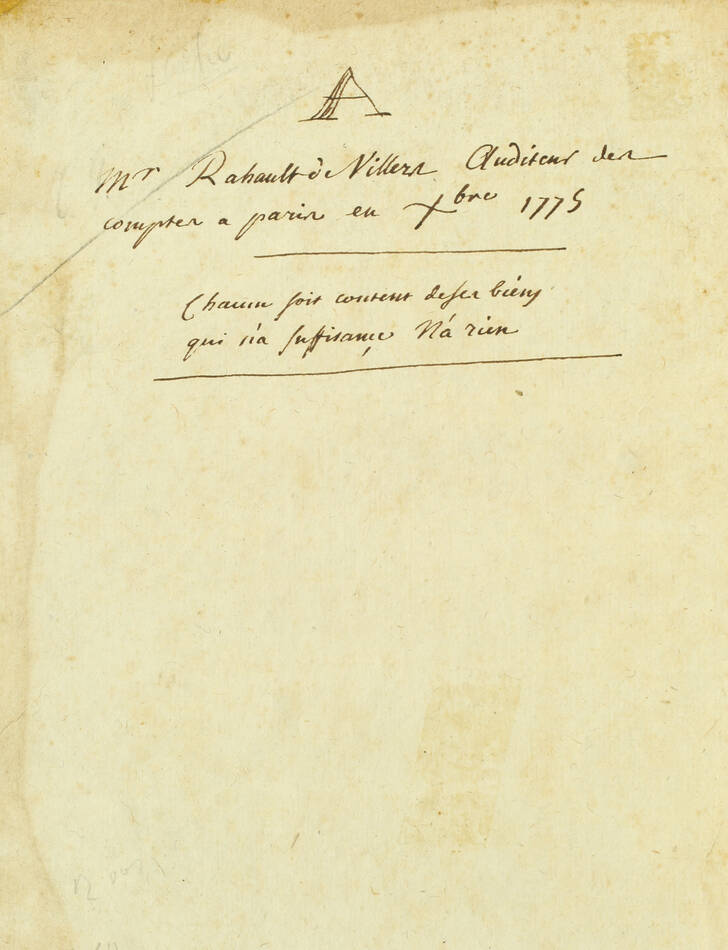 A
Mr Rahault de Villers Auditeur des
comptes a paris en Xbre 1775
Chacun soit content de ses biens
qui n'a suffisance N'a rien